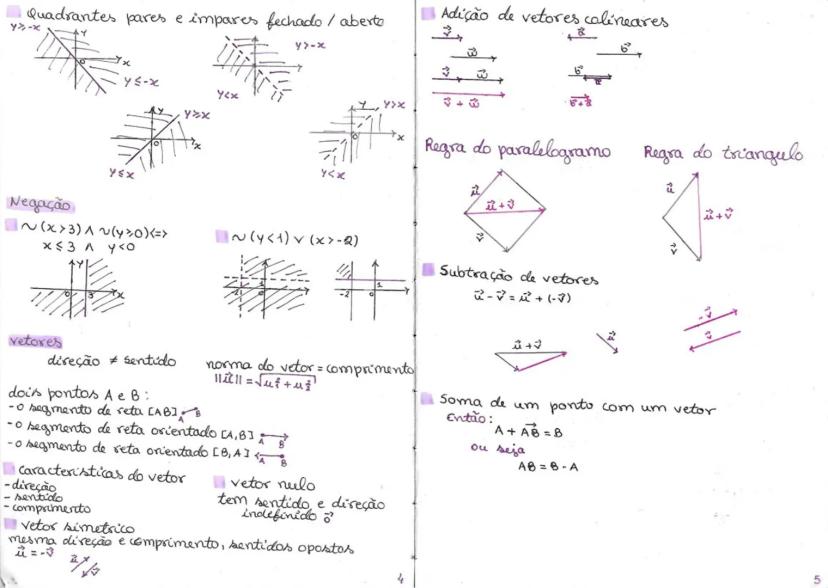 Quadrantes pares e impares fechado / aberto
y≥-x
y
0
x
y≤-x
y>-x
y<x
y
y≥x
0
x
y≤x
y
y>x
0
x
y<x
Negação
~(x>3) ∧ ~(y≥0)<=>
x≤3 ∧ y<0
y
0
3
x
~(y<1) ∨ (x>-2)
-2
0
1
vetores
direção ≠ sentido
norma do vetor = comprimento
||u|| = √u₁² + u₂²
dois pontos A e B:
- o segmento de reta [AB]
A B
- o segmento de reta orientado [A,B]
A B
- o segmento de reta orientado [B,A]
A B
caracteristicas do vetor
- direção
- sentido
- comprimento
vetor nulo
tem sentido e direção
indefinido 0
vetor simetrico
mesma direção e comprimento, sentidos opostos
u = -v
u
v
4
Adição de vetores colineares
v
w
v w
v + w
a
b
b
a
b+a
Regra do paralelogramo
u
u+v
v
Regra do triangulo
u
u+v
v
Subtração de vetores
u - v = u + (-v)
u+v
u
-v
v
Soma de um ponto com um vetor
Então:
A + AB = B
ou seja
AB = B - A
5